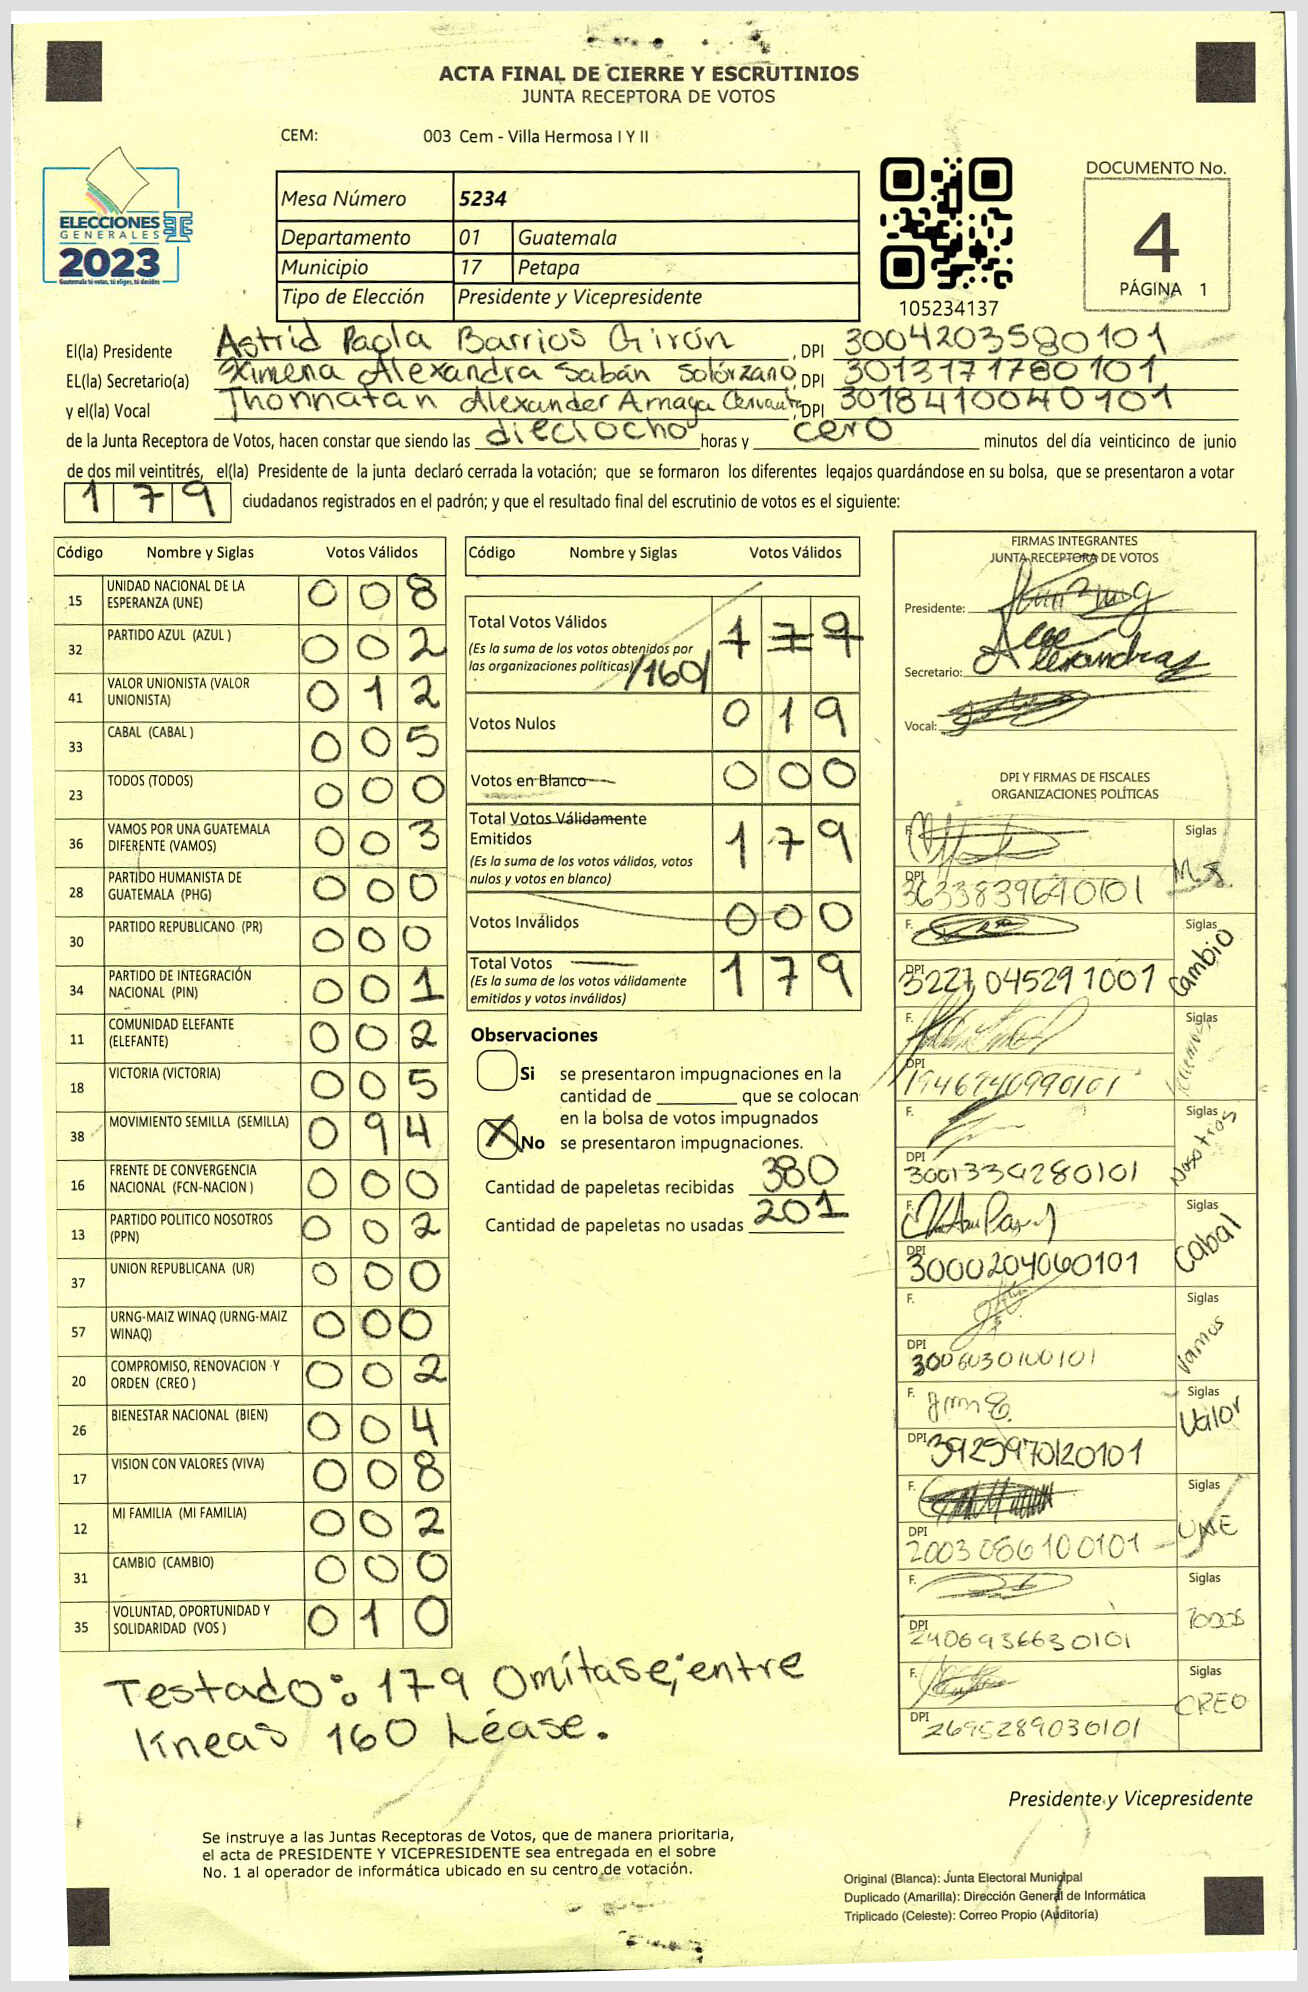 ACTA FINAL DE CIERRE Y ESCRUTINIOS
JUNTA RECEPTORA DE VOTOS
CEM: 003 Cem - Villa Hermosa I Y II
ELECCIONES
GENERALES
2023
Guatemala tú votas, tú eliges, tú decides
Mesa Número 5234
Departamento 01 Guatemala
Municipio 17 Petapa
Tipo de Elección Presidente y Vicepresidente
105234137
DOCUMENTO No.
4
PÁGINA 1
El(la) Presidente Astrid Paola Barrios Girón, DPI 3004203580101
EL(la) Secretario(a) Ximena Alexandra Sabán Solórzano, DPI 3013171780101
y el(la) Vocal Jhonnatan Alexander Arnaga Cervantes, DPI 3018410040101
de la Junta Receptora de Votos, hacen constar que siendo las dieciocho horas y cero minutos del día veinticinco de junio
de dos mil veintitrés, el(la) Presidente de la junta declaró cerrada la votación; que se formaron los diferentes legajos quardándose en su bolsa, que se presentaron a votar
179 ciudadanos registrados en el padrón; y que el resultado final del escrutinio de votos es el siguiente:
Código Nombre y Siglas Votos Válidos
15 UNIDAD NACIONAL DE LA ESPERANZA (UNE) 008
32 PARTIDO AZUL (AZUL ) 002
41 VALOR UNIONISTA (VALOR UNIONISTA) 012
33 CABAL (CABAL ) 005
23 TODOS (TODOS) 000
36 VAMOS POR UNA GUATEMALA DIFERENTE (VAMOS) 003
28 PARTIDO HUMANISTA DE GUATEMALA (PHG) 000
30 PARTIDO REPUBLICANO (PR) 000
34 PARTIDO DE INTEGRACIÓN NACIONAL (PIN) 001
11 COMUNIDAD ELEFANTE (ELEFANTE) 002
18 VICTORIA (VICTORIA) 005
38 MOVIMIENTO SEMILLA (SEMILLA) 094
16 FRENTE DE CONVERGENCIA NACIONAL (FCN-NACION ) 000
13 PARTIDO POLITICO NOSOTROS (PPN) 002
37 UNION REPUBLICANA (UR) 000
57 URNG-MAIZ WINAQ (URNG-MAIZ WINAQ) 000
20 COMPROMISO, RENOVACION Y ORDEN (CREO ) 002
26 BIENESTAR NACIONAL (BIEN) 004
17 VISION CON VALORES (VIVA) 008
12 MI FAMILIA (MI FAMILIA) 002
31 CAMBIO (CAMBIO) 000
35 VOLUNTAD, OPORTUNIDAD Y SOLIDARIDAD (VOS ) 010
Testado: 179 Omítase; entre
líneas 160 Léase.
Código Nombre y Siglas Votos Válidos
Total Votos Válidos 179
(Es la suma de los votos obtenidos por
las organizaciones políticas) /160/
Votos Nulos 019
Votos en Blanco 000
Total Votos Válidamente
Emitidos 179
(Es la suma de los votos válidos, votos
nulos y votos en blanco)
Votos Inválidos 000
Total Votos 179
(Es la suma de los votos válidamente
emitidos y votos inválidos)
Observaciones
Si se presentaron impugnaciones en la
cantidad de ________ que se colocan
en la bolsa de votos impugnados
X No se presentaron impugnaciones.
Cantidad de papeletas recibidas 380
Cantidad de papeletas no usadas 201
FIRMAS INTEGRANTES
JUNTA RECEPTORA DE VOTOS
Presidente:
Secretario:
Vocal:
DPI Y FIRMAS DE FISCALES
ORGANIZACIONES POLÍTICAS
F. Siglas
DPI 3633839640101
F. Siglas Cambio
DPI 3227045291001
F. Siglas
DPI 1946940990101
F. Siglas Nosotros
DPI 3001339280101
F. Siglas Cabal
DPI 3000204060101
F. Siglas Vamos
DPI 3006030100101
F. Siglas Valor
DPI 3925970120101
F. Siglas UNE
DPI 2003086100101
F. Siglas TODOS
DPI 2406936630101
F. Siglas CREO
DPI 2695289030101
Presidente y Vicepresidente
Se instruye a las Juntas Receptoras de Votos, que de manera prioritaria,
el acta de PRESIDENTE Y VICEPRESIDENTE sea entregada en el sobre
No. 1 al operador de informática ubicado en su centro de votación.
Original (Blanca): Junta Electoral Municipal
Duplicado (Amarilla): Dirección General de Informática
Triplicado (Celeste): Correo Propio (Auditoría)